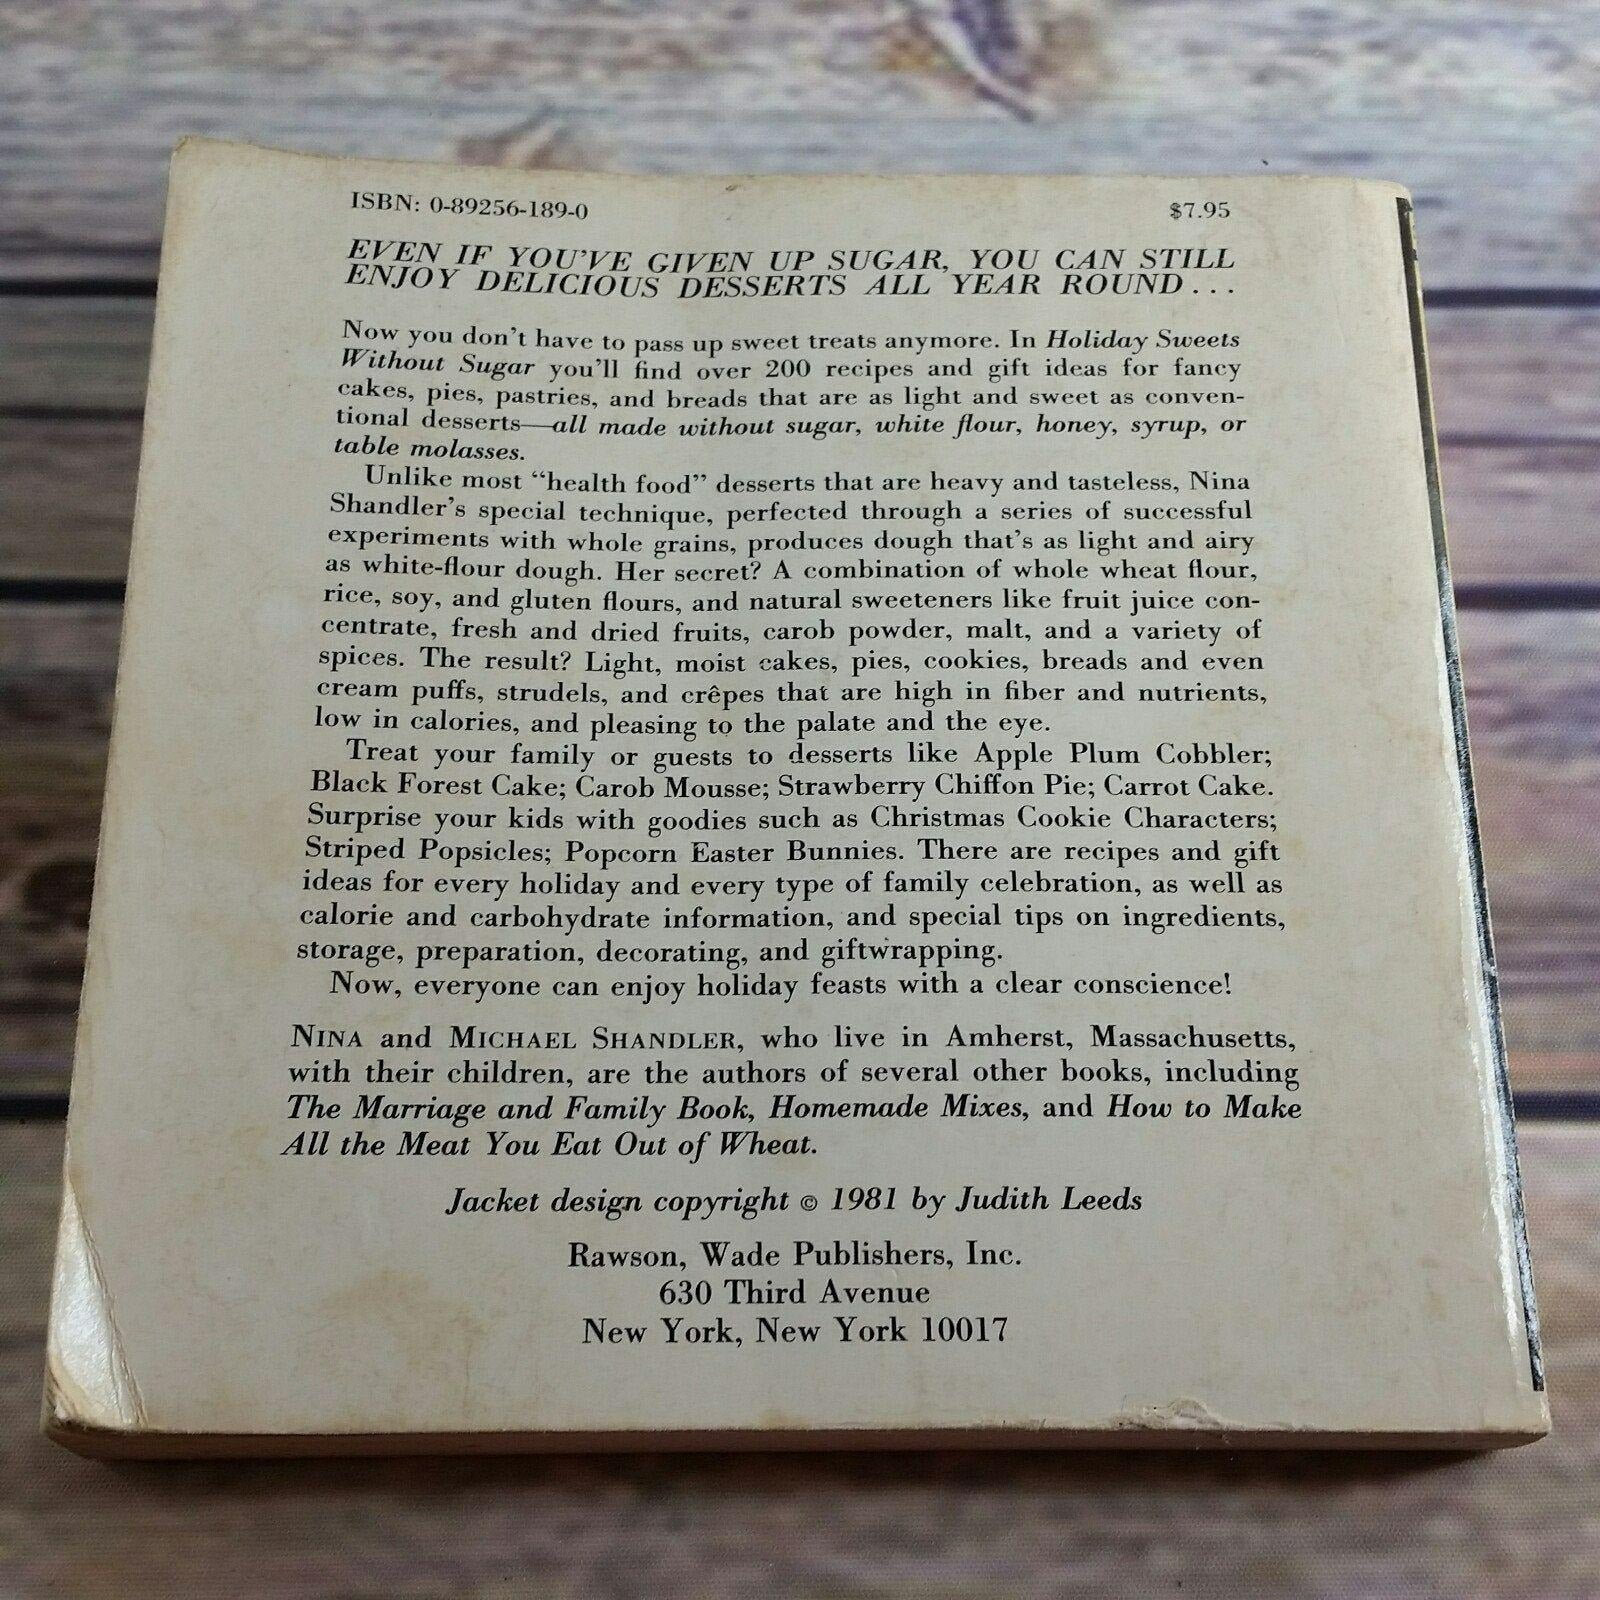 ISBN: 0-89256-189-0 $7.95
EVEN IF YOU'VE GIVEN UP SUGAR, YOU CAN STILL
ENJOY DELICIOUS DESSERTS ALL YEAR ROUND...
Now you don't have to pass up sweet treats anymore. In Holiday Sweets
Without Sugar you'll find over 200 recipes and gift ideas for fancy
cakes, pies, pastries, and breads that are as light and sweet as conven-
tional desserts—all made without sugar, white flour, honey, syrup, or
table molasses.
Unlike most "health food" desserts that are heavy and tasteless, Nina
Shandler's special technique, perfected through a series of successful
experiments with whole grains, produces dough that's as light and airy
as white-flour dough. Her secret? A combination of whole wheat flour,
rice, soy, and gluten flours, and natural sweeteners like fruit juice con-
centrate, fresh and dried fruits, carob powder, malt, and a variety of
spices. The result? Light, moist cakes, pies, cookies, breads and even
cream puffs, strudels, and crêpes that are high in fiber and nutrients,
low in calories, and pleasing to the palate and the eye.
Treat your family or guests to desserts like Apple Plum Cobbler;
Black Forest Cake; Carob Mousse; Strawberry Chiffon Pie; Carrot Cake.
Surprise your kids with goodies such as Christmas Cookie Characters;
Striped Popsicles; Popcorn Easter Bunnies. There are recipes and gift
ideas for every holiday and every type of family celebration, as well as
calorie and carbohydrate information, and special tips on ingredients,
storage, preparation, decorating, and giftwrapping.
Now, everyone can enjoy holiday feasts with a clear conscience!
NINA and MICHAEL SHANDLER, who live in Amherst, Massachusetts,
with their children, are the authors of several other books, including
The Marriage and Family Book, Homemade Mixes, and How to Make
All the Meat You Eat Out of Wheat.
Jacket design copyright © 1981 by Judith Leeds
Rawson, Wade Publishers, Inc.
630 Third Avenue
New York, New York 10017